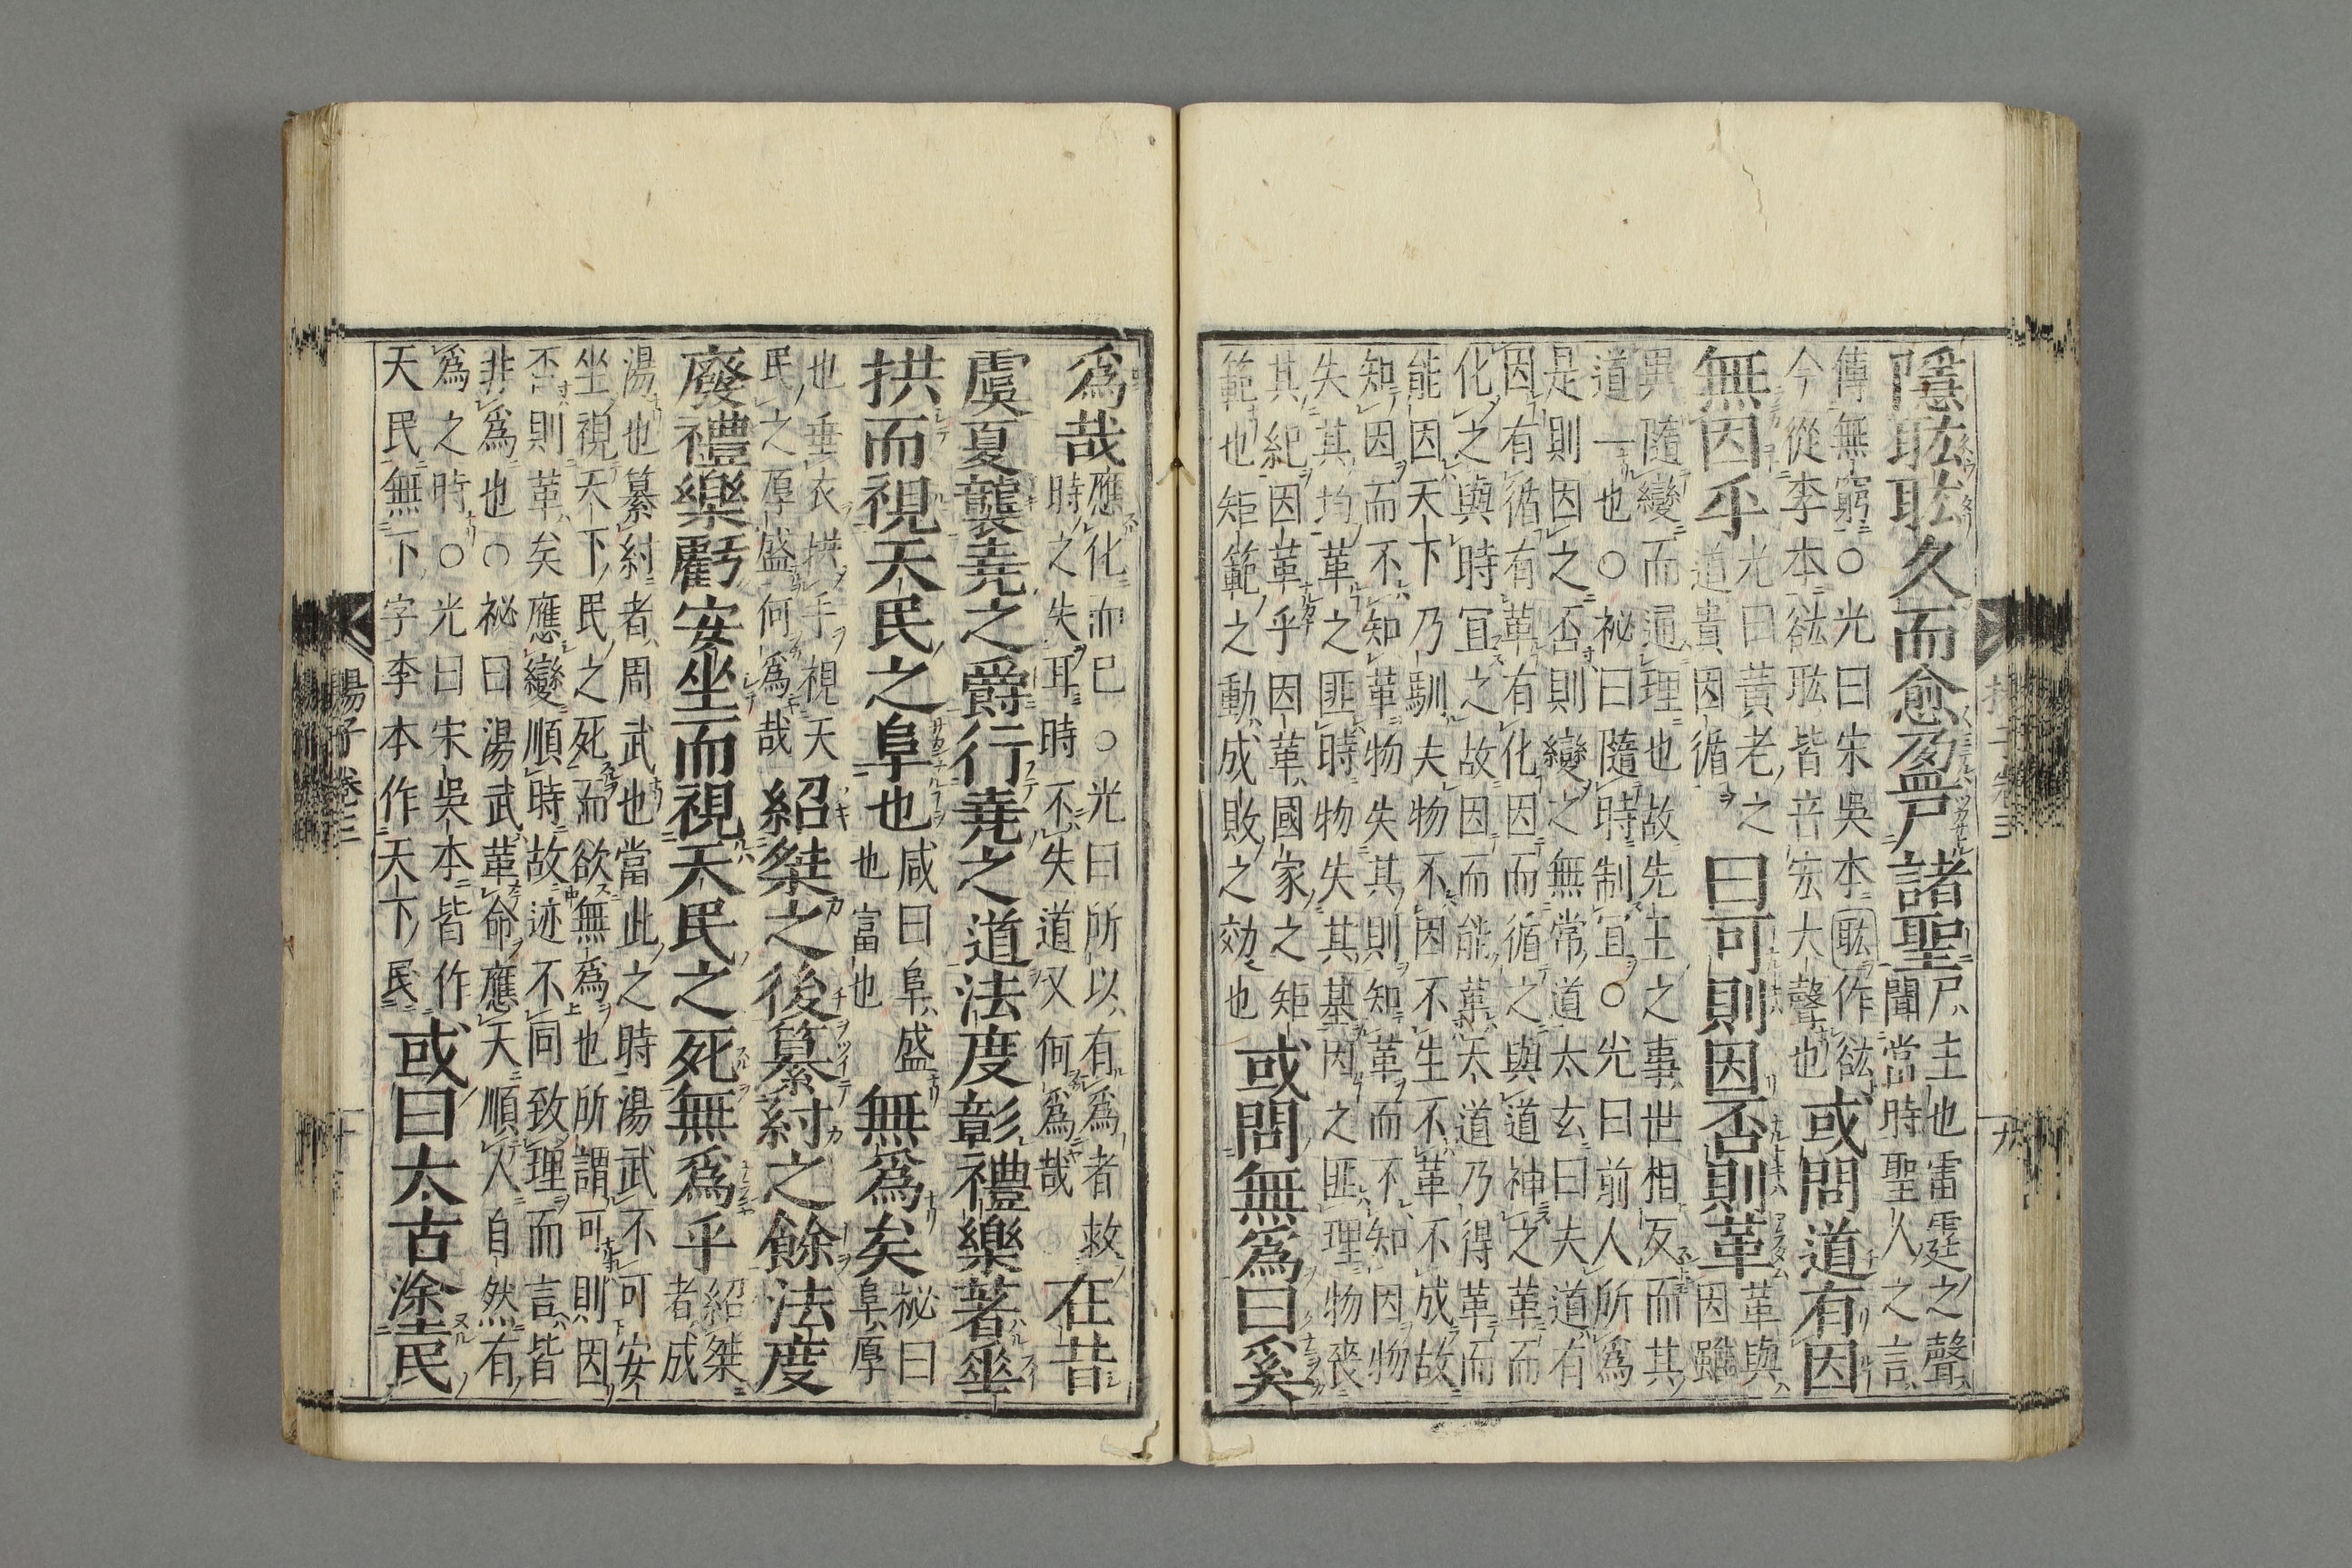 隱耾耾久而愈盈尸諸聖
尸主也雷霆之聲
聞當時聖人之言
傳無窮○光曰宋吳本耾作谹
今從李本谹耾皆音宏大聲也
或問道有因
無因乎
光曰黃老之
道貴因循
曰可則因否則革
革與
因雖
異隨變而通理也故先王之事世相反而其
道一也○祕曰隨時制宜○光曰前人所爲
是則因之否則變之無常道太玄曰夫道有
因有循有革有化因而循之與道神之革而
化之與時宜之故因而能革天道乃得革而
能因天下乃馴夫物不因不生不革不成故
知因而不知革物失其則知革而不知因物
失其均革之匪時物失其基因之匪理物喪
其紀因革乎因革國家之矩
範也矩範之動成敗之効也
或問無爲曰奚
爲哉
應化而已○光曰所以有爲者救
時之失耳時不失道又何爲哉
在昔
虞夏襲堯之爵行堯之道法度彰禮樂著垂
拱而視天民之阜也
咸曰阜盛
也富也
無爲矣
祕曰
阜厚
也垂衣拱手視天
民之厚盛何爲哉
紹桀之後纂紂之餘法度
廢禮樂虧安坐而視天民之死無爲乎
紹桀
者成
湯也纂紂者周武也當此之時湯武不可安
坐視天下民之死而欲無爲也所謂可則因
否則革矣應變順時故迹不同致理而言皆
非爲也○祕曰湯武革命應天順人自然有
爲之時○光曰宋吳本皆作
天民無下字李本作天下民
或曰太古塗民
揚子卷三
十